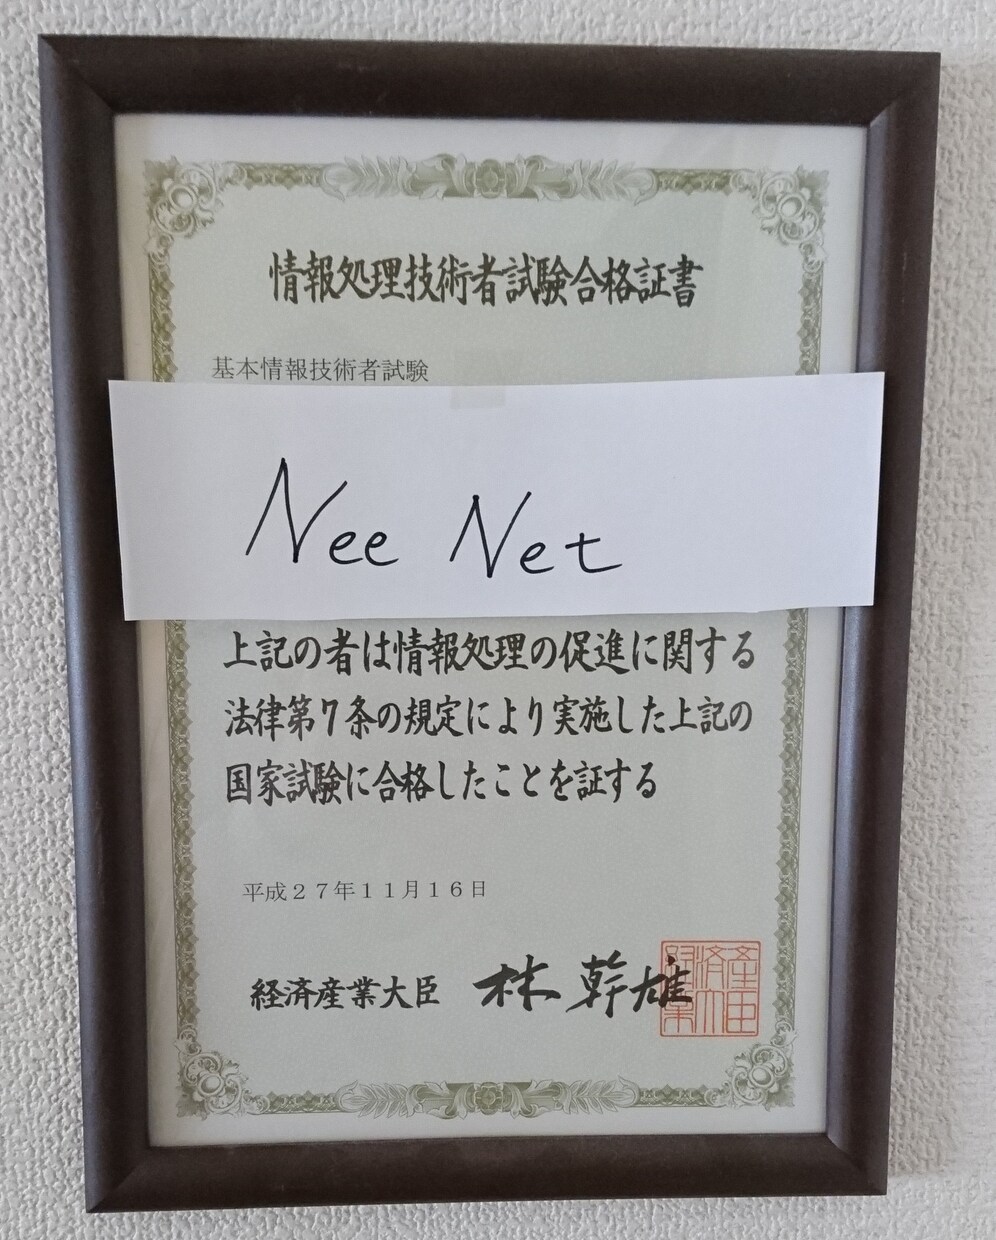 情報処理技術者試験合格証書
基本情報技術者試験
Nee Net
上記の者は情報処理の促進に関する
法律第7条の規定により実施した上記の
国家試験に合格したことを証する
平成27年11月16日
経済産業大臣 林幹雄